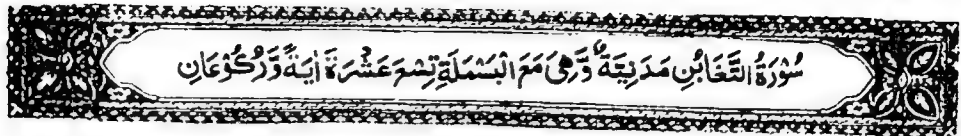 سُوْرَةُ التَّغَابُنِ مَدَنِيَّةٌ وَّهِیَ مَعَ الْبَسْمَلَةِ تِسْعَ عَشْرَةَ اٰيَةً وَّرُكُوْعَانِ